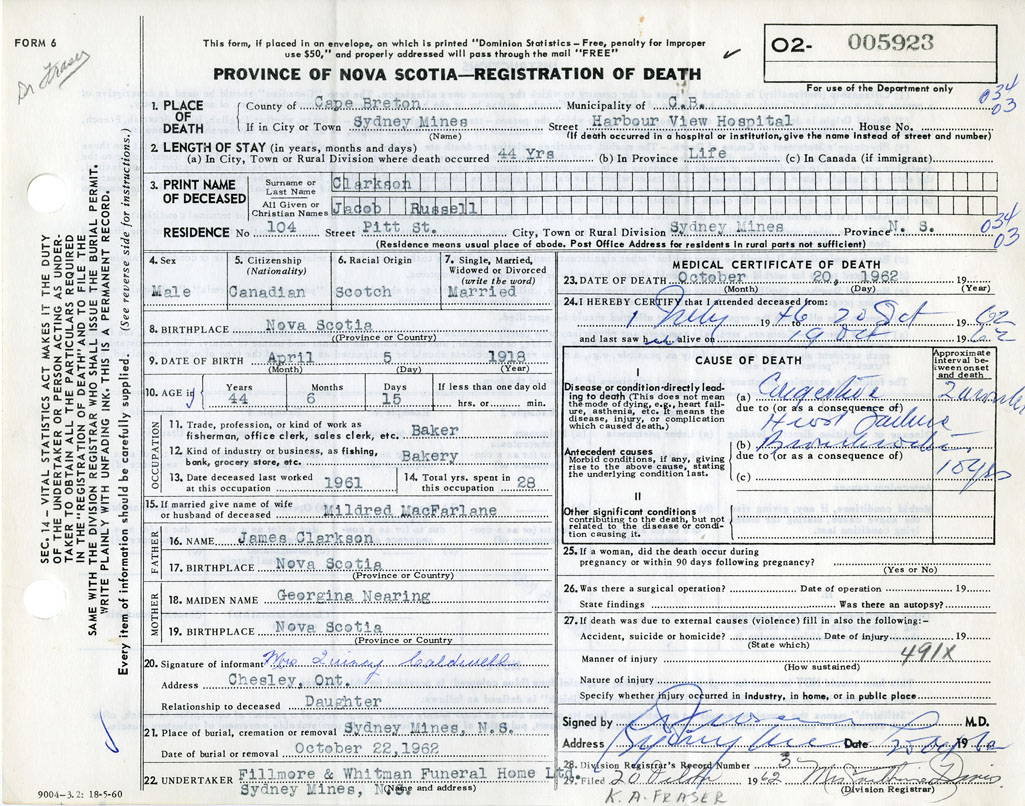 FORM 6
Dr Fraser
This form, if placed in an envelope, on which is printed "Dominion Statistics – Free, penalty for improper
use $50," and properly addressed will pass through the mail "FREE"
PROVINCE OF NOVA SCOTIA—REGISTRATION OF DEATH
O2- 005923
For use of the Department only
034
03
1. PLACE OF DEATH
County of Cape Breton Municipality of C.B.
If in City or Town Sydney Mines Street Harbour View Hospital House No.
(Name) (If death occurred in a hospital or institution, give the name instead of street and number)
2. LENGTH OF STAY (in years, months and days)
(a) In City, Town or Rural Division where death occurred 44 Yrs (b) In Province Life (c) In Canada (if immigrant)
3. PRINT NAME OF DECEASED
Surname or Last Name Clarkson
All Given or Christian Names Jacob Russell
RESIDENCE No 104 Street Pitt St. City, Town or Rural Division Sydney Mines Province N. S.
(Residence means usual place of abode. Post Office Address for residents in rural parts not sufficient)
034
03
4. Sex Male
5. Citizenship (Nationality) Canadian
6. Racial Origin Scotch
7. Single, Married, Widowed or Divorced (write the word) Married
8. BIRTHPLACE Nova Scotia
((Province or Country)
9. DATE OF BIRTH April 5 1918
(Month) (Day) (Year)
10. AGE in Years 44 Months 6 Days 15 If less than one day old hrs. or min.
OCCUPATION
11. Trade, profession, or kind of work as
fisherman, office clerk, sales clerk, etc. Baker
12. Kind of industry or business, as fishing,
bank, grocery store, etc. Bakery
13. Date deceased last worked at this occupation 1961
14. Total yrs. spent in this occupation 28
15. If married give name of wife
or husband of deceased Mildred MacFarlane
FATHER
16. NAME James Clarkson
17. BIRTHPLACE Nova Scotia
(Province or Country)
MOTHER
18. MAIDEN NAME Georgina Nearing
19. BIRTHPLACE Nova Scotia
(Province or Country)
20. Signature of informant Mrs Caldwell
Address Chesley, Ont.
Relationship to deceased Daughter
21. Place of burial, cremation or removal Sydney Mines, N.S.
Date of burial or removal October 22,1962
22. UNDERTAKER Fillmore & Whitman Funeral Home Ltd.
Sydney Mines, N.S. (Name and address)
MEDICAL CERTIFICATE OF DEATH
23. DATE OF DEATH October 20, 1962
(Month) (Day) (Year)
24. I HEREBY CERTIFY that I attended deceased from:
1 1946 20 Oct 1962
and last saw him alive on 19 Oct 1962
CAUSE OF DEATH
Approximate interval between onset and death
I
Disease or condition directly leading to death (This does not mean
the mode of dying, e.g., heart failure, asthenia, etc. It means the
disease, injury, or complication
which caused death.)
(a) Congestive
due to (or as a consequence of)
Heart Failure
(b)
due to (or as a consequence of)
10 yrs
(c)
Antecedent causes
Morbid conditions, if any, giving
rise to the above cause, stating
the underlying condition last.
II
Other significant conditions
contributing to the death, but not
related to the disease or condition causing it.
25. If a woman, did the death occur during
pregnancy or within 90 days following pregnancy?
(Yes or No)
26. Was there a surgical operation? Date of operation 19
State findings Was there an autopsy?
27. If death was due to external causes (violence) fill in also the following:-
Accident, suicide or homicide? Date of injury 19
(State which)
Manner of injury 491X
(How sustained)
Nature of injury
Specify whether injury occurred in industry, in home, or in public place
Signed by M.D.
Address Sydney Mines Date 20 Oct 1962
28. Division Registrar's Record Number 3
29. Filed 20 1962
(Division Registrar)
K.A. FRASER
SEC. 14 – VITAL STATISTICS ACT MAKES IT THE DUTY
OF THE UNDERTAKER OR PERSON ACTING AS UNDER-
TAKER TO OBTAIN ALL THE PARTICULARS REQUIRED
IN THE "REGISTRATION OF DEATH" AND TO FILE THE
SAME WITH THE DIVISION REGISTRAR WHO SHALL ISSUE THE BURIAL PERMIT.
WRITE PLAINLY WITH UNFADING INK. THIS IS A PERMANENT RECORD.
Every item of information should be carefully supplied. (See reverse side for instructions.)
9004-3.2: 18-5-60